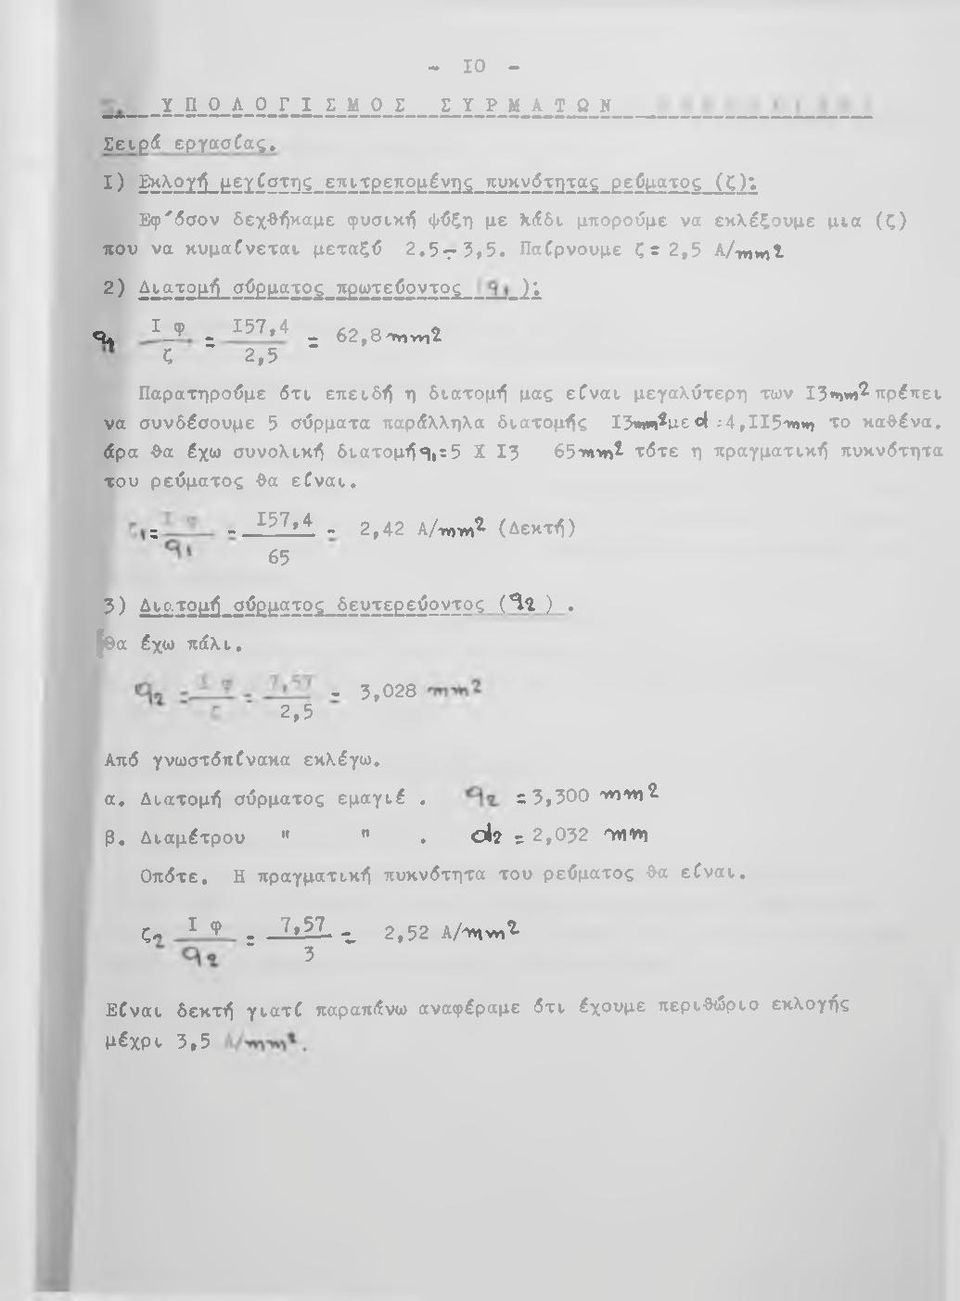 - 10 -
ΥΠΟΛΟΓΙΣΜΟΣ ΣΥΡΜΑΤΩΝ
Σειρά εργασίας.
Ι) Εκλογή μεγίστης επιτρεπομένης πυκνότητας ρεύματος (ζ):
Εφ'όσον δεχθήκαμε φυσική ψύξη με λάδι μπορούμε να εκλέξουμε μια (ζ)
που να κυμαίνεται μεταξύ 2.5 - 3,5. Παίρνουμε ζ = 2,5 A/mm2
2) Διατομή σύρματος πρωτεύοντος (q1):
q1 Ιφ/ζ = 157,4/2,5 = 62,8 mm2
Παρατηρούμε ότι επειδή η διατομή μας είναι μεγαλύτερη των 13mm2 πρέπει
να συνδέσουμε 5 σύρματα παράλληλα διατομής 13mm2 με d :4,115mm το καθένα.
άρα θα έχω συνολική διατομή q1=5 X 13 65mm2 τότε η πραγματική πυκνότητα
του ρεύματος θα είναι.
ζ1 = Ιφ/q1 = 157,4/65 = 2,42 A/mm2 (Δεκτή)
3) Διατομή σύρματος δευτερεύοντος (q2).
θα έχω πάλι.
q2 = Ιφ/ζ = 7,57/2,5 = 3,028 mm2
Από γνωστόπίνακα εκλέγω.
α. Διατομή σύρματος εμαγιέ . q2 = 3,300 mm2
β. Διαμέτρου " " . d2 = 2,032 mm
Οπότε. Η πραγματική πυκνότητα του ρεύματος θα είναι.
ζ2 Ιφ/q2 = 7,57/3 = 2,52 A/mm2
Είναι δεκτή γιατί παραπάνω αναφέραμε ότι έχουμε περιθώριο εκλογής
μέχρι 3,5 A/mm2.